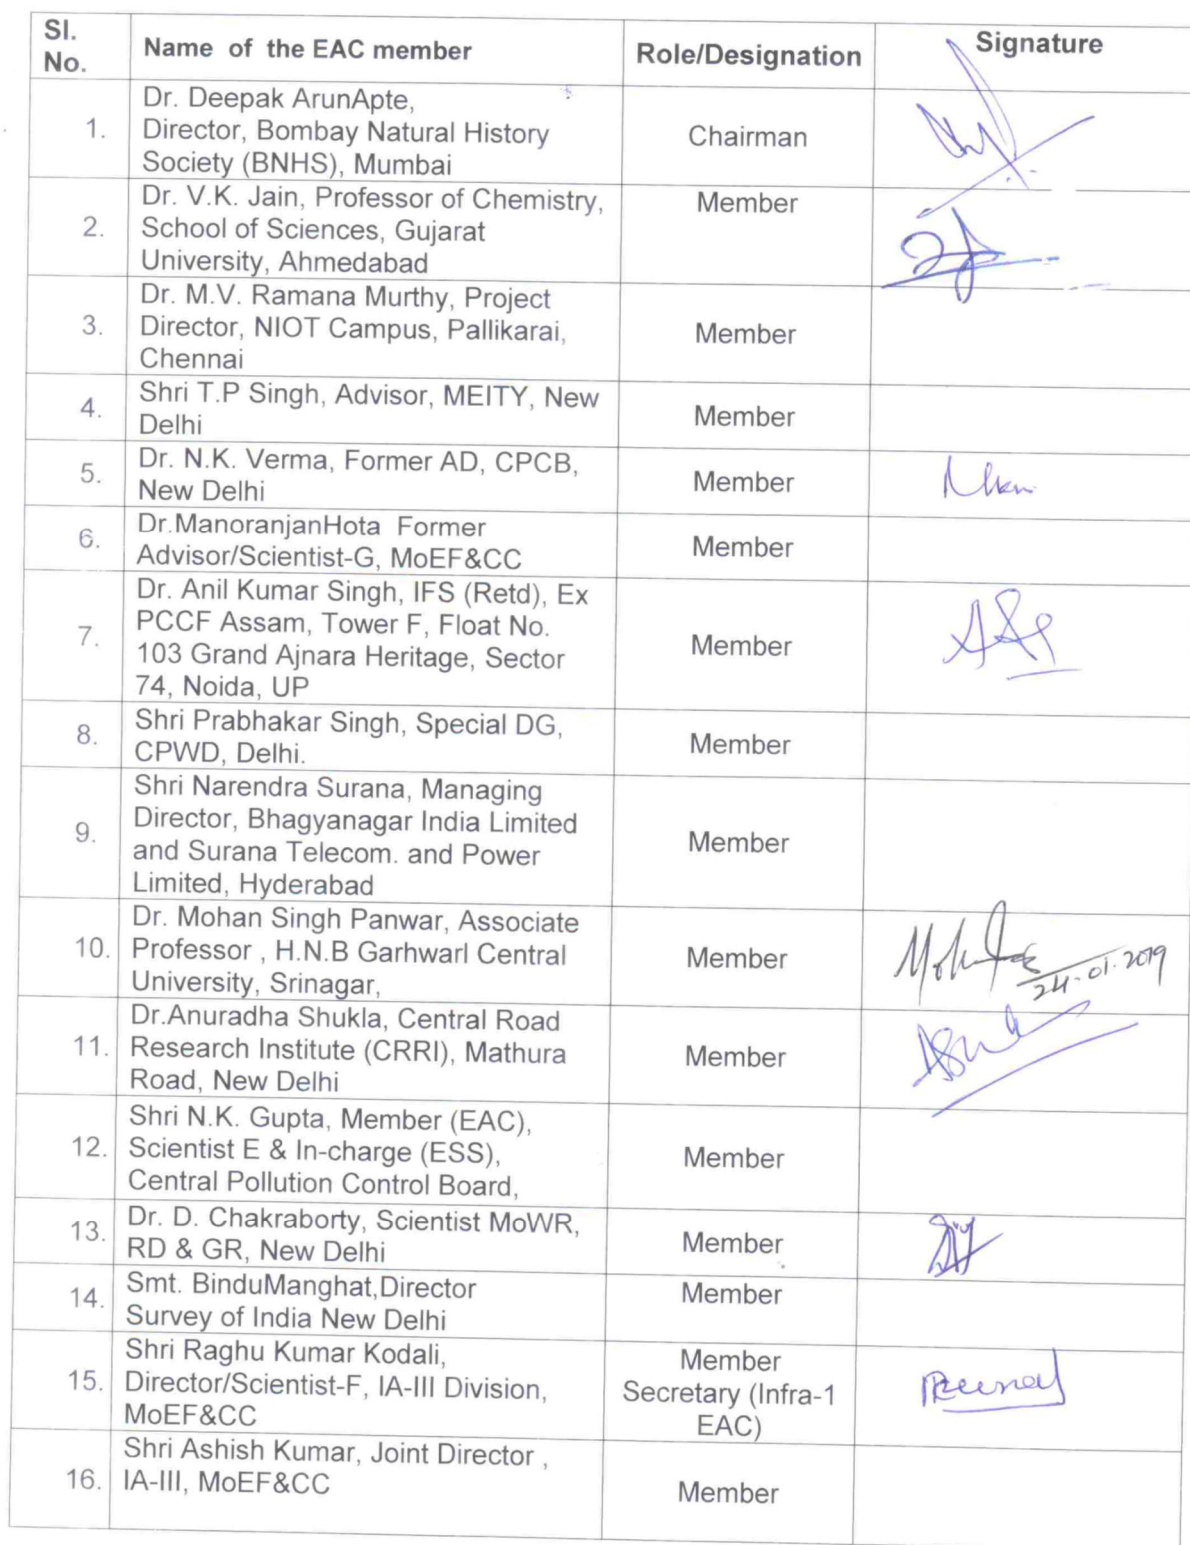 Sl. No.
Name of the EAC member
Role/Designation
Signature
1.
Dr. Deepak ArunApte,
Director, Bombay Natural History
Society (BNHS), Mumbai
Chairman
2.
Dr. V.K. Jain, Professor of Chemistry,
School of Sciences, Gujarat
University, Ahmedabad
Member
3.
Dr. M.V. Ramana Murthy, Project
Director, NIOT Campus, Pallikarai,
Chennai
Member
4.
Shri T.P Singh, Advisor, MEITY, New
Delhi
Member
5.
Dr. N.K. Verma, Former AD, CPCB,
New Delhi
Member
6.
Dr.ManoranjanHota Former
Advisor/Scientist-G, MoEF&CC
Member
7.
Dr. Anil Kumar Singh, IFS (Retd), Ex
PCCF Assam, Tower F, Float No.
103 Grand Ajnara Heritage, Sector
74, Noida, UP
Member
8.
Shri Prabhakar Singh, Special DG,
CPWD, Delhi.
Member
9.
Shri Narendra Surana, Managing
Director, Bhagyanagar India Limited
and Surana Telecom. and Power
Limited, Hyderabad
Member
10.
Dr. Mohan Singh Panwar, Associate
Professor , H.N.B Garhwarl Central
University, Srinagar,
Member
24-01-2019
11.
Dr.Anuradha Shukla, Central Road
Research Institute (CRRI), Mathura
Road, New Delhi
Member
12.
Shri N.K. Gupta, Member (EAC),
Scientist E & In-charge (ESS),
Central Pollution Control Board,
Member
13.
Dr. D. Chakraborty, Scientist MoWR,
RD & GR, New Delhi
Member
14.
Smt. BinduManghat,Director
Survey of India New Delhi
Member
15.
Shri Raghu Kumar Kodali,
Director/Scientist-F, IA-III Division,
MoEF&CC
Member
Secretary (Infra-1
EAC)
16.
Shri Ashish Kumar, Joint Director ,
IA-III, MoEF&CC
Member